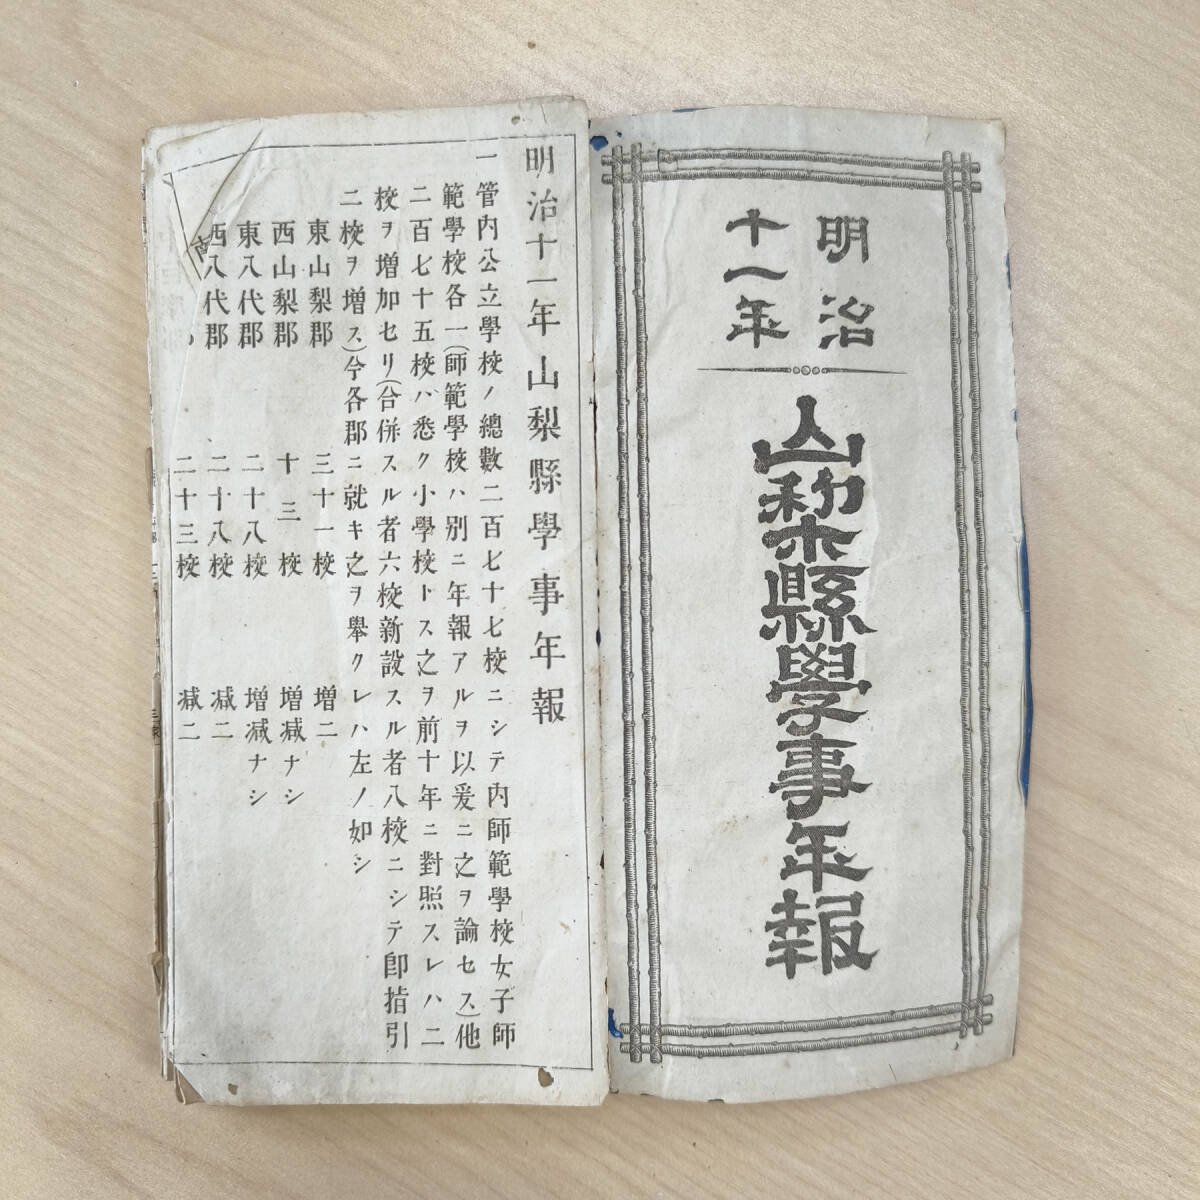 明治
十一年
山梨縣學事年報
明治十一年山梨縣學事年報
一管内公立學校ノ總數二百七十七校ニシテ内師範學校女子師
範學校各一(師範學校ハ別ニ年報アルヲ以爰ニ之ヲ論セス)他
二百七十五校ハ悉ク小學校トス之ヲ前十年ニ對照スレハ二
校ヲ增加セリ(合併スル者六校新設スル者八校ニシテ卽指引
二校ヲ增ス)今各郡ニ就キ之ヲ擧クレハ左ノ如シ
東山梨郡 三十一校 增二
西山梨郡 十三校 增減ナシ
東八代郡 二十八校 增減ナシ
西八代郡 二十八校 減二
二十三校 減二